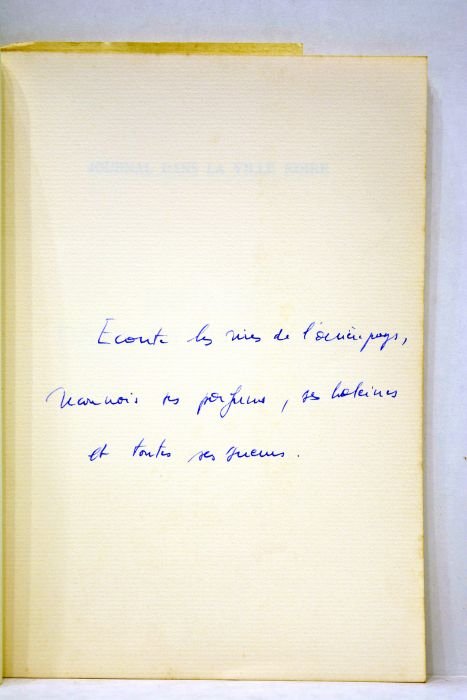 JOURNAL DANS LA VILLE
Ecoute les rires de l'arrière-pays,
reconnois ses parfums, ses haleines
et toutes ses sueurs.